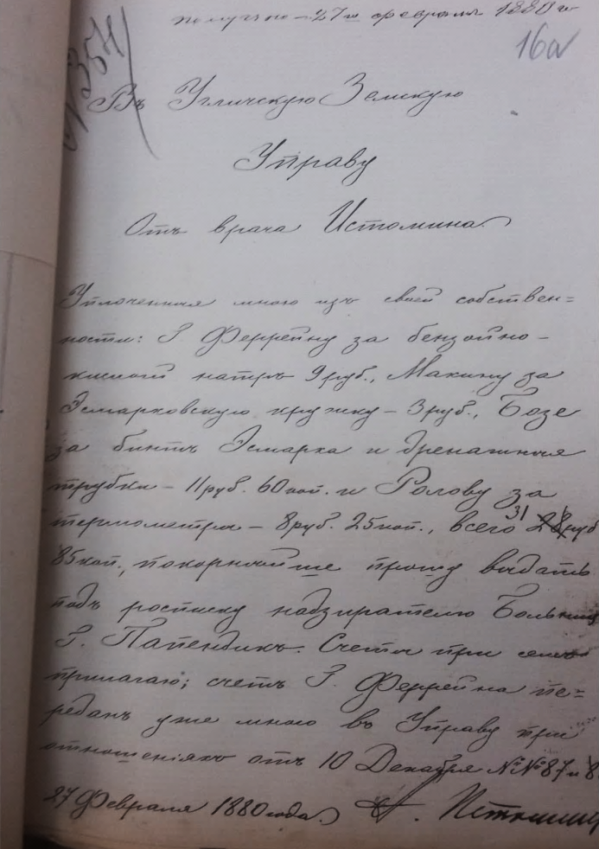 получено 27го февраля 1880 г
16а
№354
Въ Угличскую Земскую
Управу
Отъ врача Истомина.
Уплоченныя мною изъ своей собствен=
ности: Г Феррейну за бензойно-
кислый натръ 9 руб., Макину за
Эсмарховскую кружку - 3 руб., Бозе
за бинтъ Эсмарха и дренажныя
трубки - 11 руб. 60 коп. и Ролову за
термометры - 8 руб. 25 коп., всего 31 28 руб
85 коп., покорнѣйше прошу выдать
подъ росписку надзирателю Больниц
Г. Папендикъ. Счеты при семъ
прилагаю; счетъ Г. Феррейна пе=
реданъ уже мною въ Управу при
отношеніяхъ отъ 10 Декабря №№ 87 и 8
27 Февраля 1880 года. А. Истомин